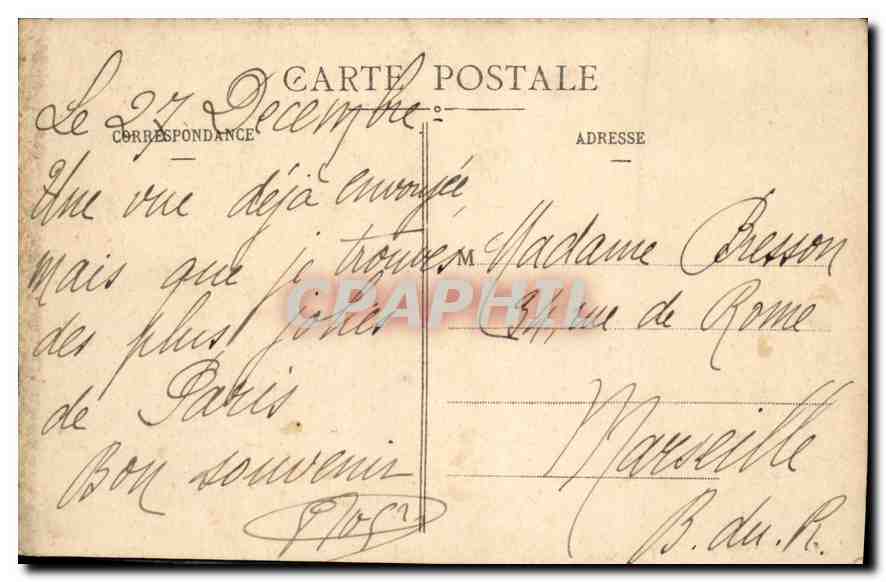 CARTE POSTALE
CORRESPONDANCE
Le 27 Decembre
Une vue déjà envoyée
mais que je trouves
des plus jolies
de Paris
Bon souvenir
ADRESSE
M Madame Bresson
rue de Rome
Marseille
B. du. R.
CPAPHIL